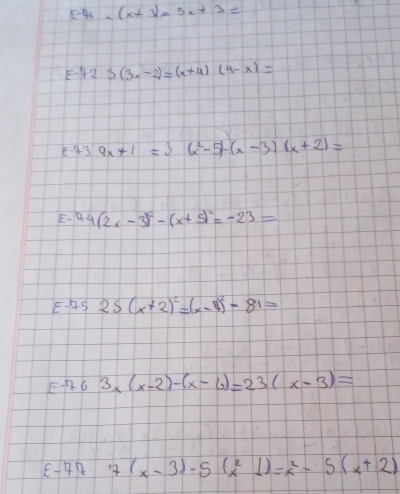 E-71 x (x+3) = 5x + 3 =
E-72 3 (3x - 2) = (x+4) (4-x) =
E-73 9x + 1 = 3 (x² - 5) - (x - 3) (x + 2) =
E-74 (2x - 3)² - (x + 5)² = -23 =
E-75 25 (x+2)² = (x - 7)² - 81 =
E-76 3x (x-2) - (x - 6) = 23 ( x - 3) =
E-77 7 (x - 3) - 5 (x² 1) = x² - 5 (x + 2)